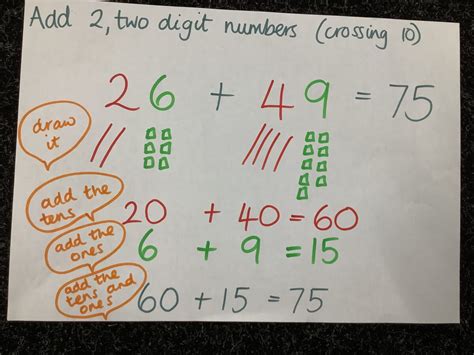 Add 2, two digit numbers (crossing 10)
26 + 49 = 75
draw
it
add the
tens
20 + 40 = 60
add the
ones
6 + 9 = 15
add the
tens and
ones
60 + 15 = 75